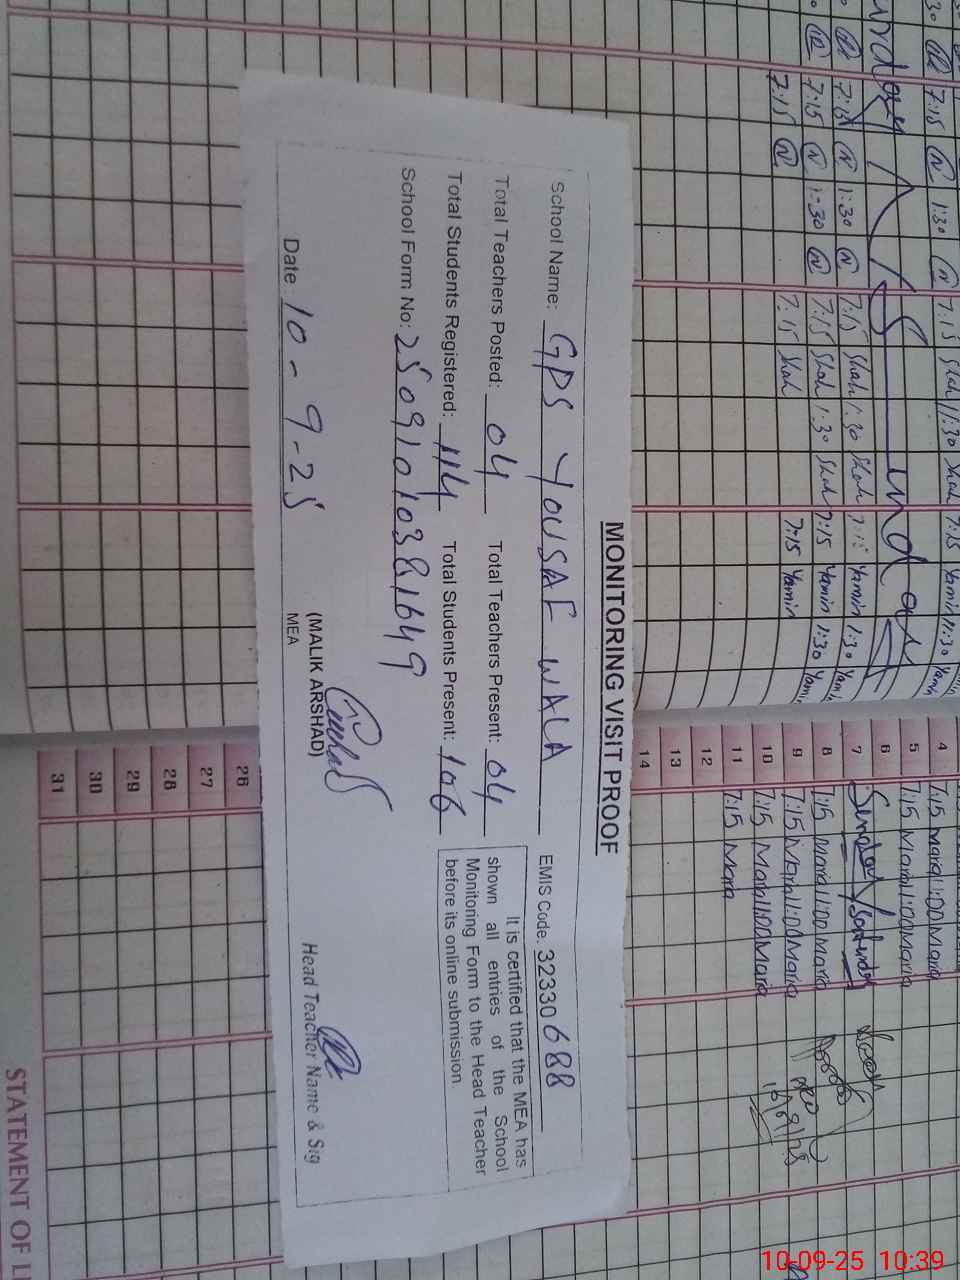 MONITORING VISIT PROOF
School Name: GPS YOUSAF WALA EMIS Code. 32330688
Total Teachers Posted: 04 Total Teachers Present: 04
Total Students Registered: 114 Total Students Present: 106
School Form No: 25091010381649
It is certified that the MEA has
shown all entries of the School
Monitoring Form to the Head Teacher
before its online submission
Date: 10-9-25
(MALIK ARSHAD)
MEA
Head Teacher Name & Sig
7:15 1:30 7:15 Shah 1:30 Shah 7:15 Yamin 1:30
7:15 1:30 7:15 Shah 1:30 Shah 7:15 Yamin 1:30
7:15 1:30 7:15 Shah 1:30 Shah 7:15 Yamin 1:30
7:15 7:15 Shah 7:15 Yamin
4 7:15 Maria 1:00 Maria
5 7:15 Maria 1:00 Maria
6
7 Sunday
8 7:15 Maria 1:00 Maria
9 7:15 Maria 1:00 Maria
10 7:15 Maria 1:00 Maria
11 7:15 Maria
12
13
14
26
27
28
29
30
31
STATEMENT OF
10-09-25 10:39